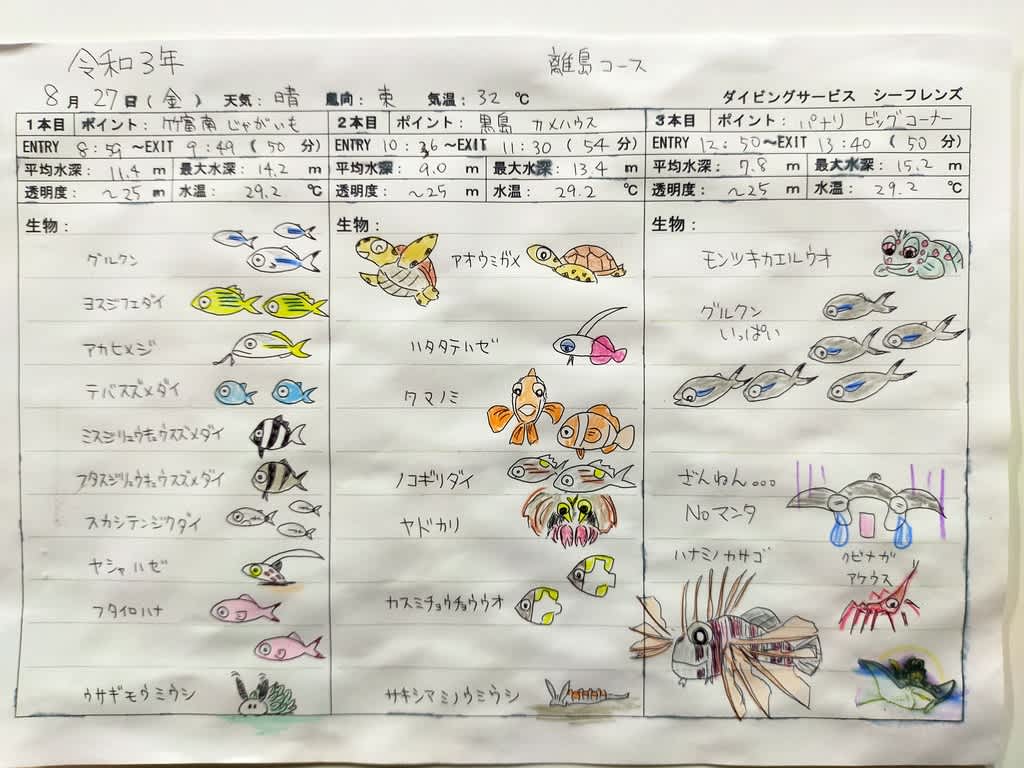 令和3年
離島コース
8月27日(金) 天気:晴 風向:東 気温:32℃
ダイビングサービス シーフレンズ
1本目 ポイント:竹富南 じゃがいも
ENTRY 8:59~EXIT 9:49(50分)
平均水深:11.4m 最大水深:14.2m
透明度:~25m 水温:29.2℃
生物:
グルクン
ヨスジフエダイ
アカヒメジ
デバスズメダイ
ミスジリュウキュウスズメダイ
フタスジリュウキュウスズメダイ
スカシテンジクダイ
ヤシャハゼ
フタイロハナ
ウサギモウミウシ
2本目 ポイント:黒島 カメハウス
ENTRY 10:36~EXIT 11:30(54分)
平均水深:9.0m 最大水深:13.4m
透明度:~25m 水温:29.2℃
生物:
アオウミガメ
ハタタテハゼ
クマノミ
ノコギリダイ
ヤドカリ
カスミチョウチョウウオ
サキシマミノウミウシ
3本目 ポイント:パナリ ビッグコーナー
ENTRY 12:50~EXIT 13:40(50分)
平均水深:7.8m 最大水深:15.2m
透明度:~25m 水温:29.2℃
生物:
モンツキカエルウオ
グルクン
いっぱい
ざんねん。。。
Noマンタ
ハナミノカサゴ
クビナガ
アケウス